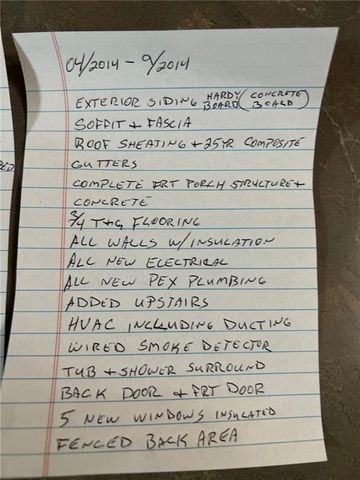 04/2014 - 9/2014
EXTERIOR SIDING HARDY BOARD (CONCRETE BOARD)
SOFFIT & FASCIA
ROOF SHEATING + 25 YR COMPOSITE
GUTTERS
COMPLETE FRT PORCH STRUCTURE +
CONCRETE
3/4 T+G FLOORING
ALL WALLS W/INSULATION
ALL NEW ELECTRICAL
ALL NEW PEX PLUMBING
ADDED UPSTAIRS
HVAC INCLUDING DUCTING
WIRED SMOKE DETECTOR
TUB + SHOWER SURROUND
BACK DOOR & FRT DOOR
5 NEW WINDOWS INSULATED
FENCED BACK AREA